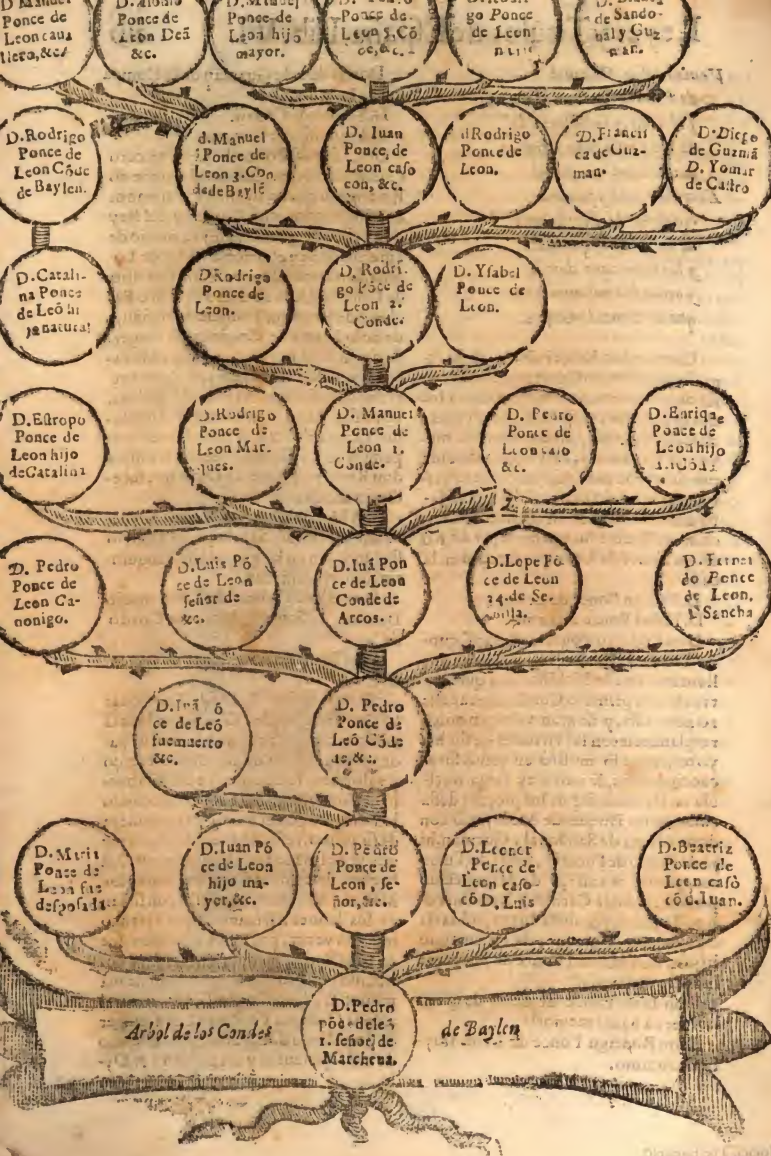 Ponce de
Leon caua
llero, &c.
Ponce de
Leon Deã
&c.
Ponce de
Leon hijo
mayor.
Ponce de
Leon 5. Cõ
de, &c.
go Ponce
de Leon
de Sando-
bal y Guz
man.
D. Rodrigo
Ponce de
Leon Cõde
de Baylen.
d. Manuel
Ponce de
Leon 3. Con
de de Baylẽ
D. Iuan
Ponce, de
Leon caso
con, &c.
d Rodrigo
Ponce de
Leon.
D. Francis
ca de Guz-
man.
D. Diego
de Guzmã
D. Yomar
de Castro
D. Catali-
na Ponce
de Leõ hi
ja natural
D Rodrigo
Ponce de
Leon.
D. Rodri-
go Põce de
Leon 2.
Conde.
D. Ysabel
Ponce de
Leon.
D. Estropo
Ponce de
Leon hijo
de Catalina
D. Rodrigo
Ponce de
Leon Mar-
ques.
D. Manuel
Ponce de
Leon 1.
Conde.
D. Pedro
Ponce de
Leon caso
&c.
D. Enrique
Ponce de
Leon hijo
D. Pedro
Ponce de
Leon Ca-
nonigo.
D. Luis Põ
ce de Leon
señor de
&c.
D. Iuã Pon
ce de Leon
Conde de
Arcos.
D. Lope Põ
ce de Leon
24. de Se-
uilla.
D. Fernan
do Ponce
de Leon,
Sancha
D. Iuã Põ
ce de Leõ
fue muerto
&c.
D. Pedro
Ponce de
Leõ Cõde
de, &c.
D. Maria
Ponce de
Leon fue
desposada
D. Iuan Põ
ce de Leon
hijo ma-
yor, &c.
D. Pedro
Ponce de
Leon, se-
ñor, &c.
D. Leonor
Ponce de
Leon caso
cõ D. Luis
D. Beatriz
Ponce de
Leon casò
cõ d. Iuan.
D. Pedro
põce de leõ
1. señor de
Marchena.
Arbol de los Condes de Baylen